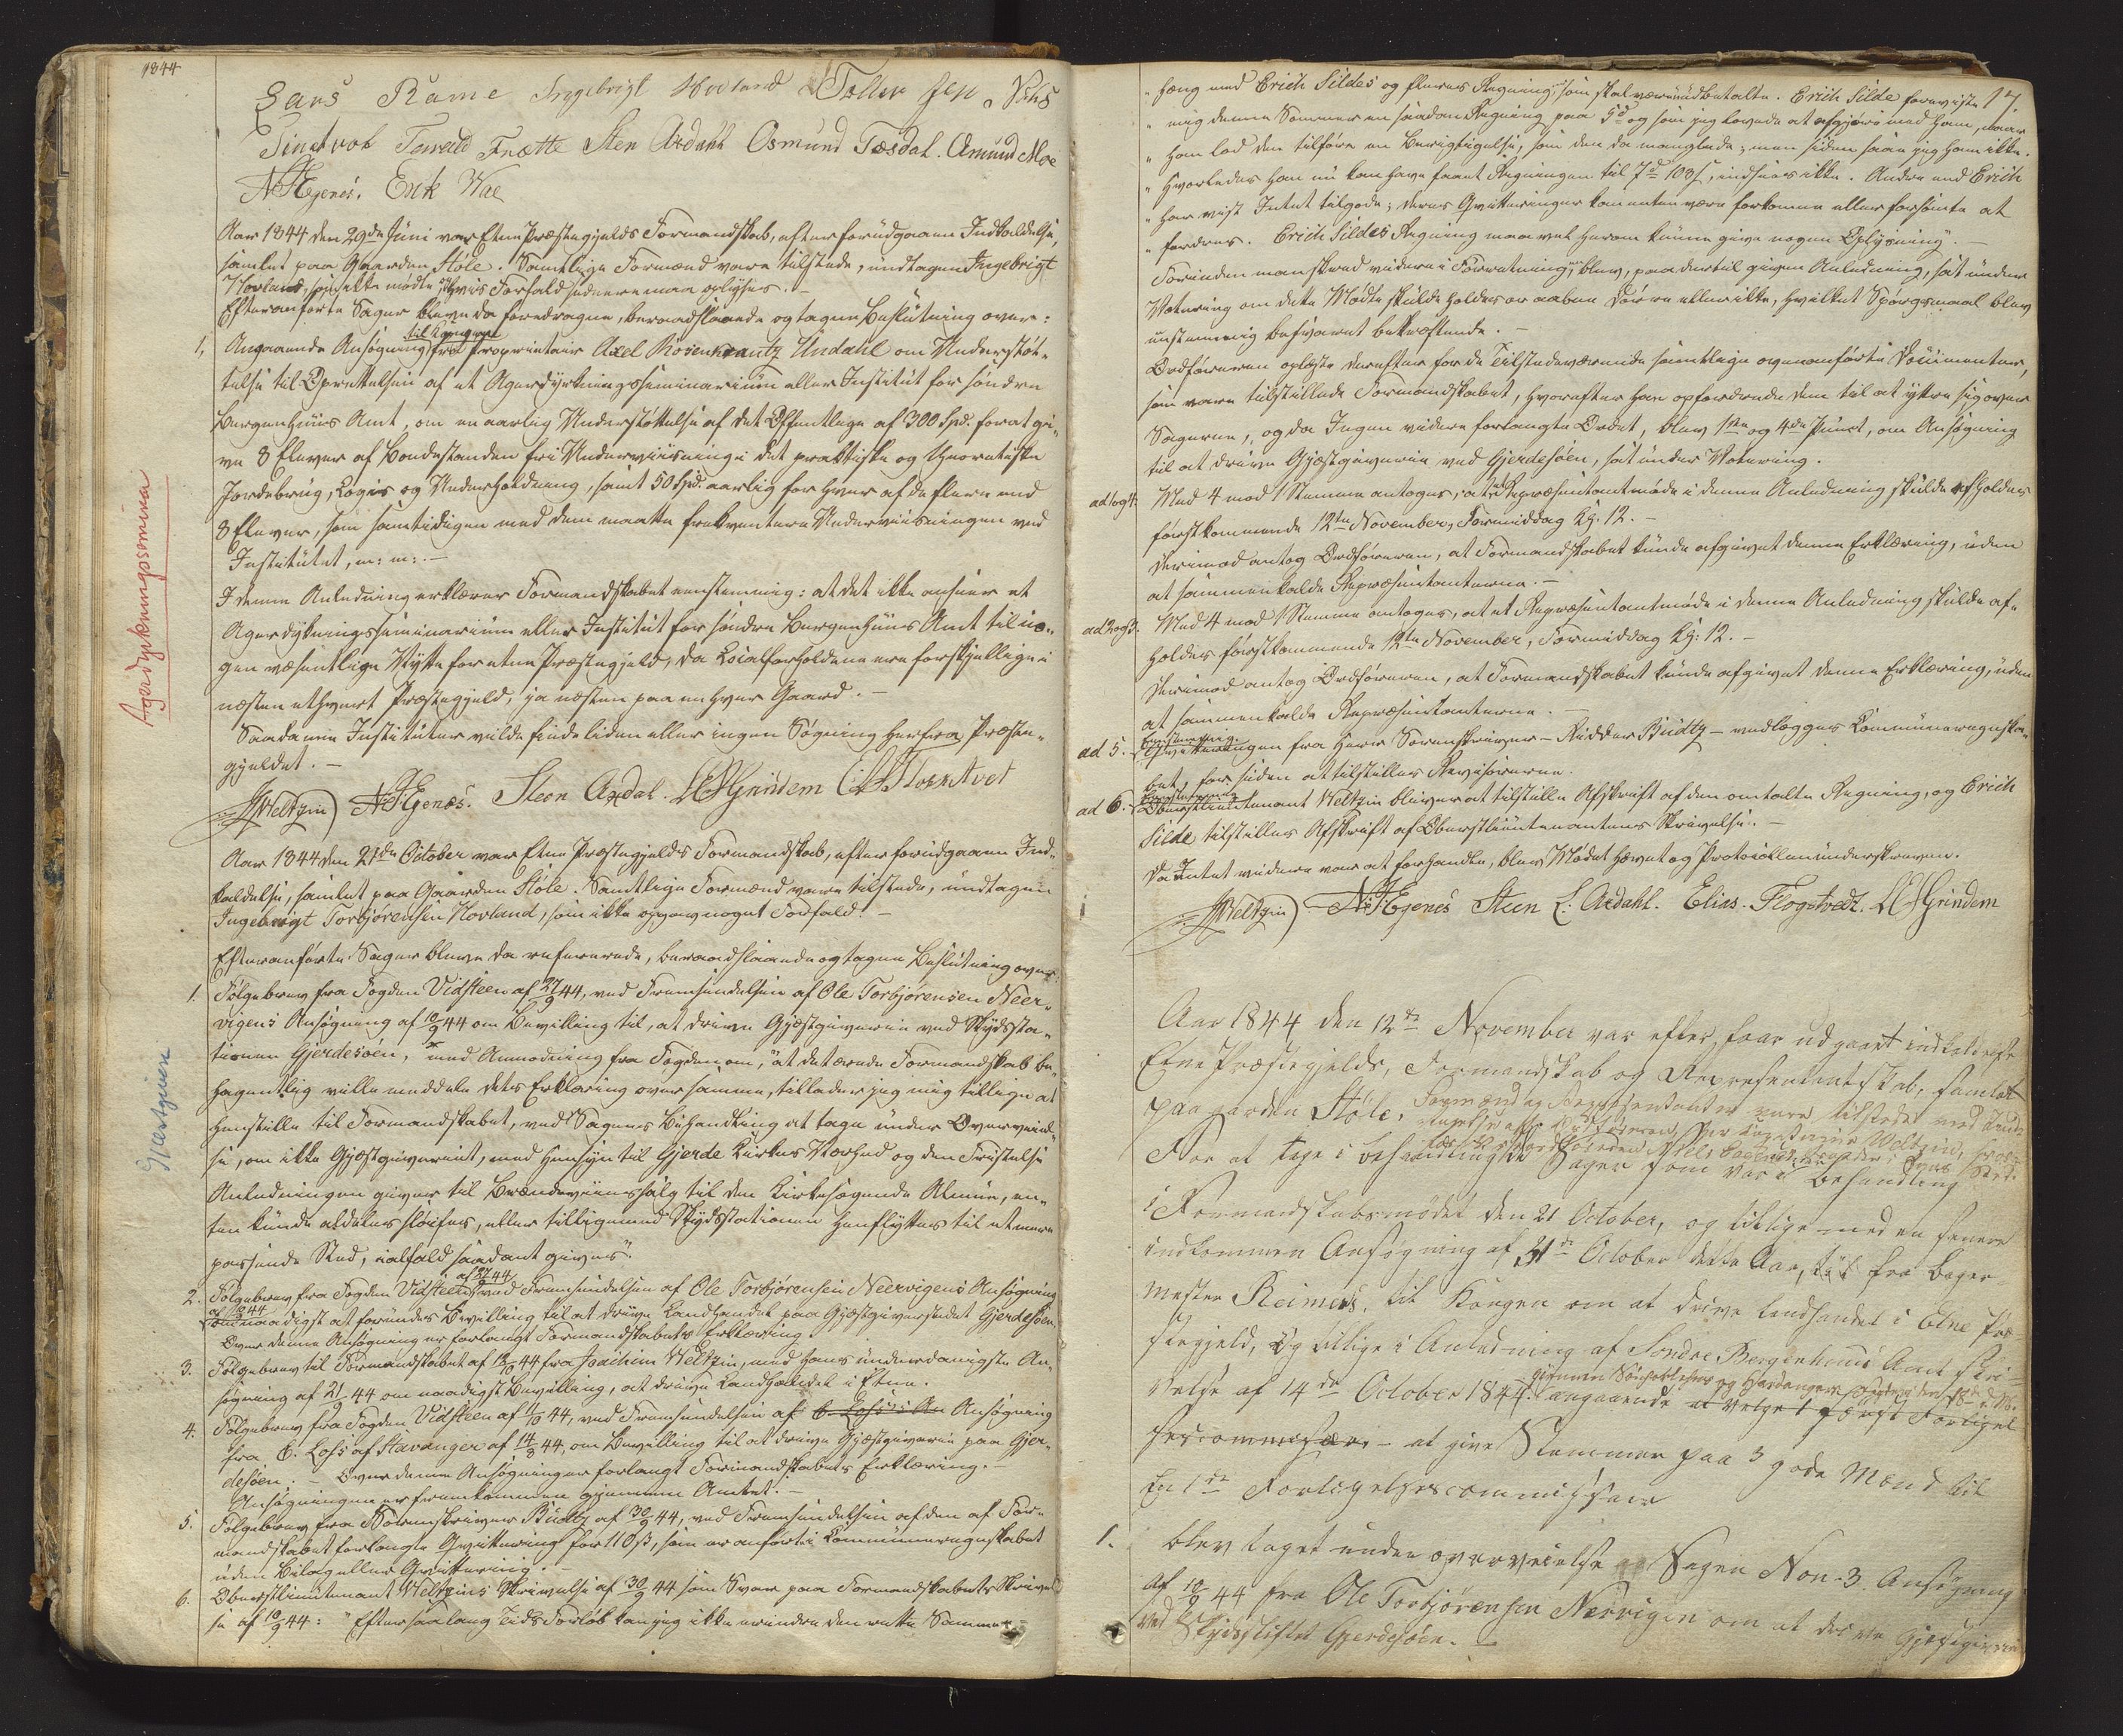 1844
Lars Rame Ingebrigt Hovland Toller Jen
Tindvob Torvald Frætte Sten Axdahl Osmund Tesdal. Amund Moe
N. H. Egenes. Erik Wae
Aar 1844 den 29de Juni var Etne Præstegjelds Formandskab, efter forudgaaen Indkaldelse,
samlet paa Gaarden Støle. Samtlige Formænd vare tilstede, undtagen Ingebrigt
Hovland, som ikke mødte, hvis Forfald senere maa oplyses.
Efteranførte Sager bleve da foredragne, beraadslaaede og tagen Beslutning over:
1, Angaaende Ansøgning til Kongen fra Proprietair Axel Rosenkrantz Undahl om Understøt-
telse til Oprettelsen af et Agerdyrkningsseminarium eller Institut for søndre
Bergenhuus Amt, om en aarlig Understøttelse af det Offentlige af 300 Spd. for at gi-
ve 8 Elever af Bondestanden fri Underviisning i det praktiske og theoretiske
Jordebrug, Logis og Underholdning, samt 50 Spd. aarlig for hver af de flere end
8 Elever, som samtidigen med dem maatte frekventere Underviisningen ved
Institutet, m: m:.-
Agerdyrkningsseminar
I denne Anledning erklærer Formandskabet eenstemmig: at det ikke anseer et
Agerdykningsseminarium eller Institut for søndre Bergenhuus Amt til no-
gen væsentlige Nytte for Etne Præstegjeld, da Localforholdene ere forskjellige i
næsten ethvert Præstegjeld, ja næsten paa enhver Gaard.-
Saadanne Instituter vilde finde liden eller ingen Søgning herfra Præste-
gjeldet.-
JWeltzin N. H. Egenes. Steen Axdal. L O Grindem
Aar 1844 den 21de October var Etne Præstegjelds Formandskab, efter forudgaaen Ind-
kaldelse, samlet paa Gaarden Støle. Samtlige Formænd vare tilstede, undtagen
Ingebrigt Torbjørensen Hovland, som ikke opgav noget Forfald.-
Efteranførte Sager bleve da refererede, beraadslaaede og tagen Beslutning over:
1. Følgebrev fra Fogden Vidsteen af 27/9 44, ved Fremsendelsen af Ole Torbjørensen Neer-
vigens Ansøgning af 10/9 44 om Bevilling til, at drive Gjæstgiverie ved Skydssta-
tionen Gjerdesøen, med Anmodning fra Fogden om, "at det ærede Formandskab be-
hageligt ville meddele dets Erklæring over samme, tillader jeg mig tillige at
henstille til Formandskabet, ved Sagens Behandling at tage under Overveiel-
se, om ikke Gjæstgiveriet, med Hensyn til Gjerde Kirkes Nærhed og den Fristelse
Anledningen giver til Brændeviinssalg til den Kirkesøgende Almue, en-
ten kunde aldeles sløifes, eller tilligemed Skydsstationen henflyttes til et mere
passende Sted, ialfald saadant gives".
Gjæstgiveri
2. Følgebrev fra Fogden Vidsteen af 27/9 44 ved Fremsendelsen af Ole Torbjørensen Neervigens Ansøgning
af 10/9 44 om naadigst at forundes Bevilling til at drive Landhandel paa Gjæstgiverstedet Gjerdesøen.
Over denne Ansøgning er forlangt Formandskabets Erklæring.
3. Følgebrev til Formandskabet af 12/10 44 fra Joachim Weltzin, med hans underdanigste An-
søgning af 21/9 44 om naadigst Bevilling, at drive Landhandel i Etne.
4. Følgebrev fra Fogden Vidsteen af 1/10 44, ved Fremsendelsen af Ansøgning
fra C. Loss af Stavanger af 14/9 44, om Bevilling til at drive Gjæstgiverie paa Gjer-
desøen.- Over denne Ansøgning er forlangt Formandskabets Erklæring.-
Ansøgningen er fremkommen gjennem Amtet.-
5. Følgebrev fra Sorenskriver Budtz af 30/9 44, ved Fremsendelsen af den af For-
mandskabet forlangte Qvittering for 110 ß, som er anført i Kommuneregnskabet
uden Bilag eller Qvittering.
6. Oberstlieutenant Weltzins Skrivelse af 30/9 44 som Svar paa Formandskabets Skrivel-
se af 10/9 44: "Efter saa lang Tids Forløb kan jeg ikke erindre den rette Sammen-
17.
" hæng med Erich Sildes og fleres Regning, som skal være udbetalte. Erich Silde foreviste
" mig denne Sommer en saadan Regning paa 5 d og som jeg lovede at afgjøre med ham, naar
" han lod den tilføre en Berigtigelse, som den da manglede; men siden saae jeg ham ikke.
" Hvorledes han nu kan have faaet Regningen til 7 d 108 ß, indsees ikke. Andre end Erich
" har vist Intet tilgode; deres Qvitteringer kan enten være forkomne eller forsømte at
" fordres. Erich Sildes Regning maa vel herom kunne give nogen Oplysning".-
Forinden man skred videre i Forretning, blev, paa dertil given Anledning, sat under
Votering om dette Møde skulde holdes ved aabne Døre eller ikke, hvilket Spørgsmaal blev
eenstemmig besvaret bekræftende.-
Ordføreren oplæste derefter for de Tilstedeværende samtlige ovenanførte Documenter,
som vare tilstillede Formandskabet, hvorefter han opfordrede dem til at yttre sig over
Sagerne, og da Ingen videre forlangte Ordet, blev 1ste og 4de Punct, om Ansøgning
til at drive Gjæstgiverie ved Gjerdesøen, sat under Votering.
ad 1 og 4. Med 4 mod 1 Stemme antoges, at et Repræsentantmøde i denne Anledning skulde afholdes
førstkommende 12te November, Formiddag Kl: 12.-
Derimod antog Ordføreren, at Formandskabet kunde afgivet denne Erklæring, uden
at sammenkalde Repræsentanterne.-
ad 2 og 3. Med 4 mod 1 Stemme antoges, at et Repræsentantmøde i denne Anledning skulde af-
holdes førstkommende 12te November, Formiddag Kl: 12.-
Derimod antog Ordføreren, at Formandskabet kunde afgivet denne Erklæring, uden
at sammenkalde Repræsentanterne.-
ad 5. Eenstemmig. Qvitteringen fra Herr Sorenskriver - Ridder Budtz - vedlægges Kommuneregnska-
bet, for siden at tilstilles Revisorerne.
ad 6. Eenstemmig Oberstlieutenant Weltzin bliver at tilstille Afskrift af den omtalte Regning, og Erich
Silde tilstilles Afskrift af Oberstlieutenantens Skrivelse.-
Da Intet videre var at forhandle, blev Mødet hævet og Protocollen underskreven.
JWeltzin N. H. Egenes Steen L. Axdahl. Elias Flogstvedt. L O Grindem
Aar 1844 den 12te November var efter, foar udgaaet indkaldelse
Etne Præstegjelds, Formandskab og Representantskab, samlet
paa gården Støle. Formænd og Repræsentanter vare tilstede med Und-
tagelse af Ordføreren, Weltzin,
For at tage i behandling de Sager som var i behandling
i Formandskabsmødet den 21 October, og tillige med en senere
indkommen Ansøgning af 31de October dette Aar, fra bager
mester Reimers, til Kongen om at drive landhandel i Etne Præ-
stegjeld, Og tillige i Anledning af Søndre Bergenhuus Amt skri-
velse af 14de October 1844. angaaende at velge 1 første Forligel
sescommisær - at give Stemmer paa 3 gode Mænd til
En 1ste Forligelsescommissær
1. blev taget under overveielse Sagen Non. 3 Ansøgning
af 10/9 44 fra Ole Torbjørensen Nervigen om at drive Gjestgiverie
ved Skydsskiftet Gjerdesøen.-